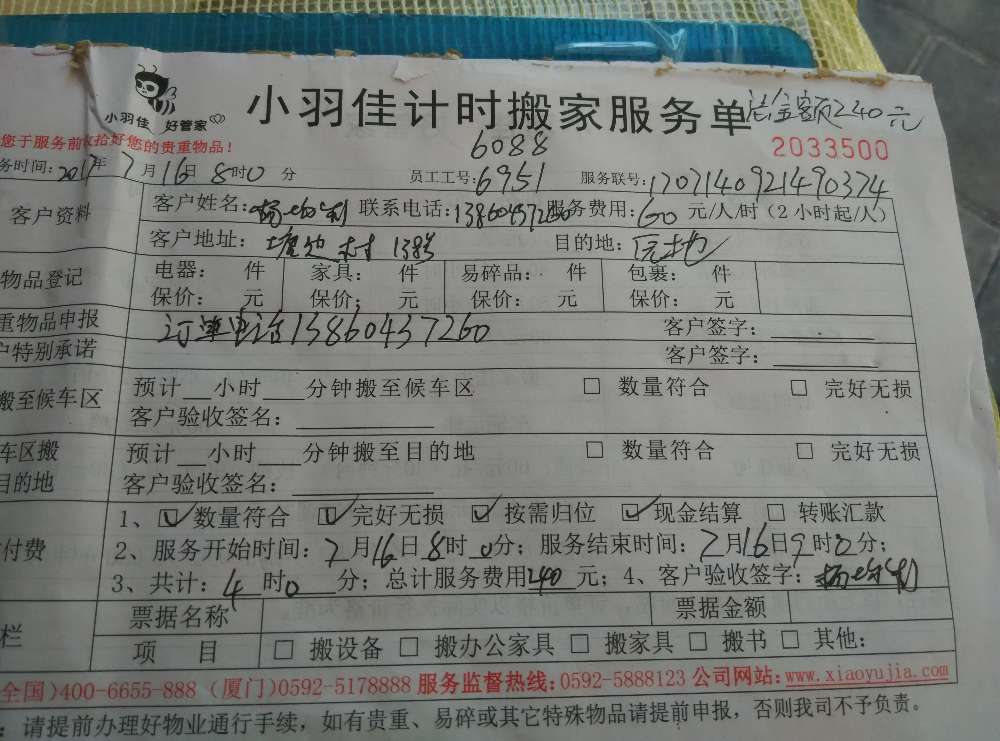 小羽佳 好管家
小羽佳计时搬家服务单
总金额240元
您于服务前收拾好您的贵重物品!
6088
2033500
务时间:2017年7月16日8时0分 员工工号:6951 服务联号:1707140921490374
客户资料
客户姓名: 联系电话:13860437260 服务费用:60元/人/时(2小时起/人)
客户地址: 村138号 目的地:原地
物品登记
电器: 件 家具: 件 易碎品: 件 包裹: 件
保价: 元 保价: 元 保价: 元 保价: 元
重物品申报
订单电话13860437260 客户签字:
户特别承诺
客户签字:
搬至候车区
预计__小时___分钟搬至候车区 □ 数量符合 □ 完好无损
客户验收签名:
车区搬
目的地
预计__小时___分钟搬至目的地 □ 数量符合 □ 完好无损
客户验收签名:
付费
1、☑数量符合 ☑完好无损 ☑按需归位 ☑现金结算 □转账汇款
2、服务开始时间:7月16日8时0分;服务结束时间:7月16日9时0分;
3、共计:4时0分;总计服务费用240元;4、客户验收签字:
栏
票据名称 票据金额
项 目 □ 搬设备 □ 搬办公家具 □ 搬家具 □ 搬书 □ 其他:
全国)400-6655-888 (厦门)0592-5178888 服务监督热线:0592-5888123 公司网站:www.xiaoyujia.com
:请提前办理好物业通行手续,如有贵重、易碎或其它特殊物品请提前申报,否则我司不予负责。